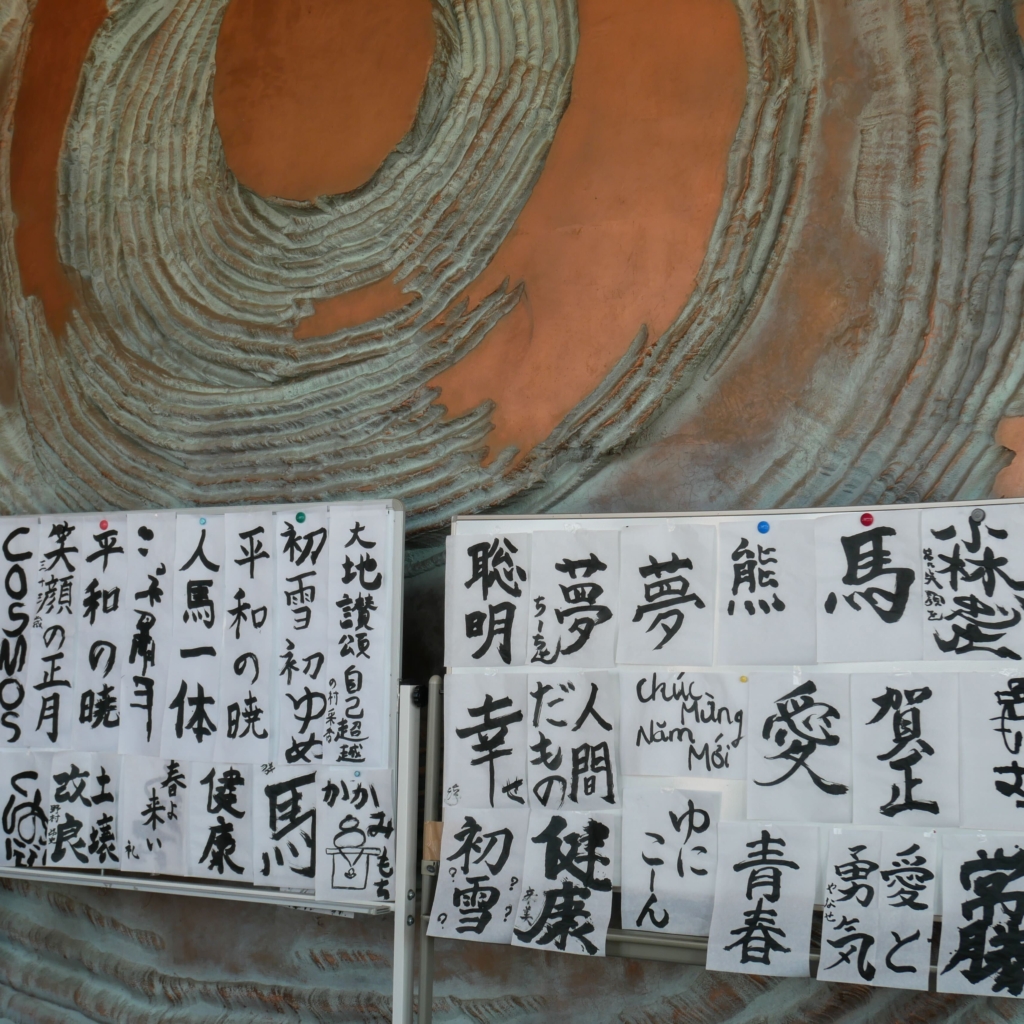 COSMOS
笑顔の正月
平和の暁
人馬一体
平和の暁
初雪 初ゆめ
大地讃頌 自己超越
改良
土壌
春よ
来い
健康
馬
かがみもち
聡明
夢
夢
熊
馬
小林
幸せ
人間
だもの
Chúc
Mừng
Năm
Mới
愛
賀正
初雪
? ? ?
健康
ゆに
こーん
青春
愛と
勇気
やなせ
常勝